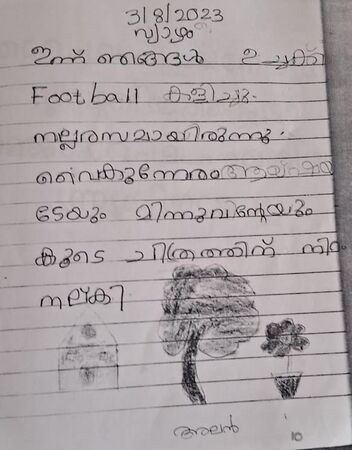 3/8/2023
വ്യാഴം
ഇന്ന് ഞങ്ങൾ ഉച്ചക്ക്
Football കളിച്ചു.
നല്ലരസമായിരുന്നു.
വൈകുന്നേരം
ടേയും മിന്നുവിന്റേയും
കൂടെ ചിത്രത്തിന് നിറം
നല്കി
അലൻ
10